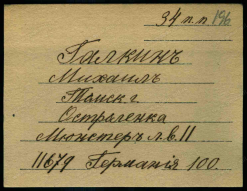 34 п.п 196
Галкинъ
Михаилъ
Томск г.
Остраленка
Мюнстеръ л.в. II
11679 Германія 100.